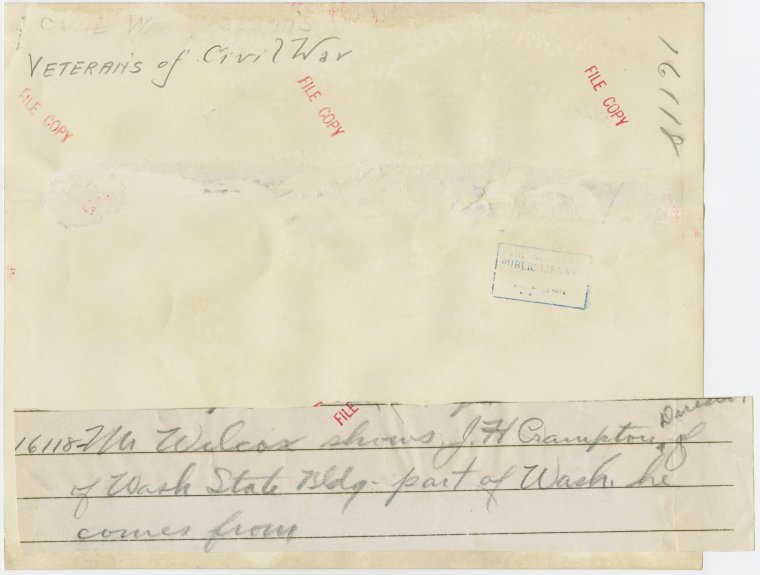 CIVIL WAR VETERANS
VETERANS of Civil War
16118
FILE COPY
FILE COPY
FILE COPY
PUBLIC LIBRARY
FILE
Director
16118-Mr Wilcox shows J. H Crampton, of
of Wash State Bldg - part of Wash. he
comes from